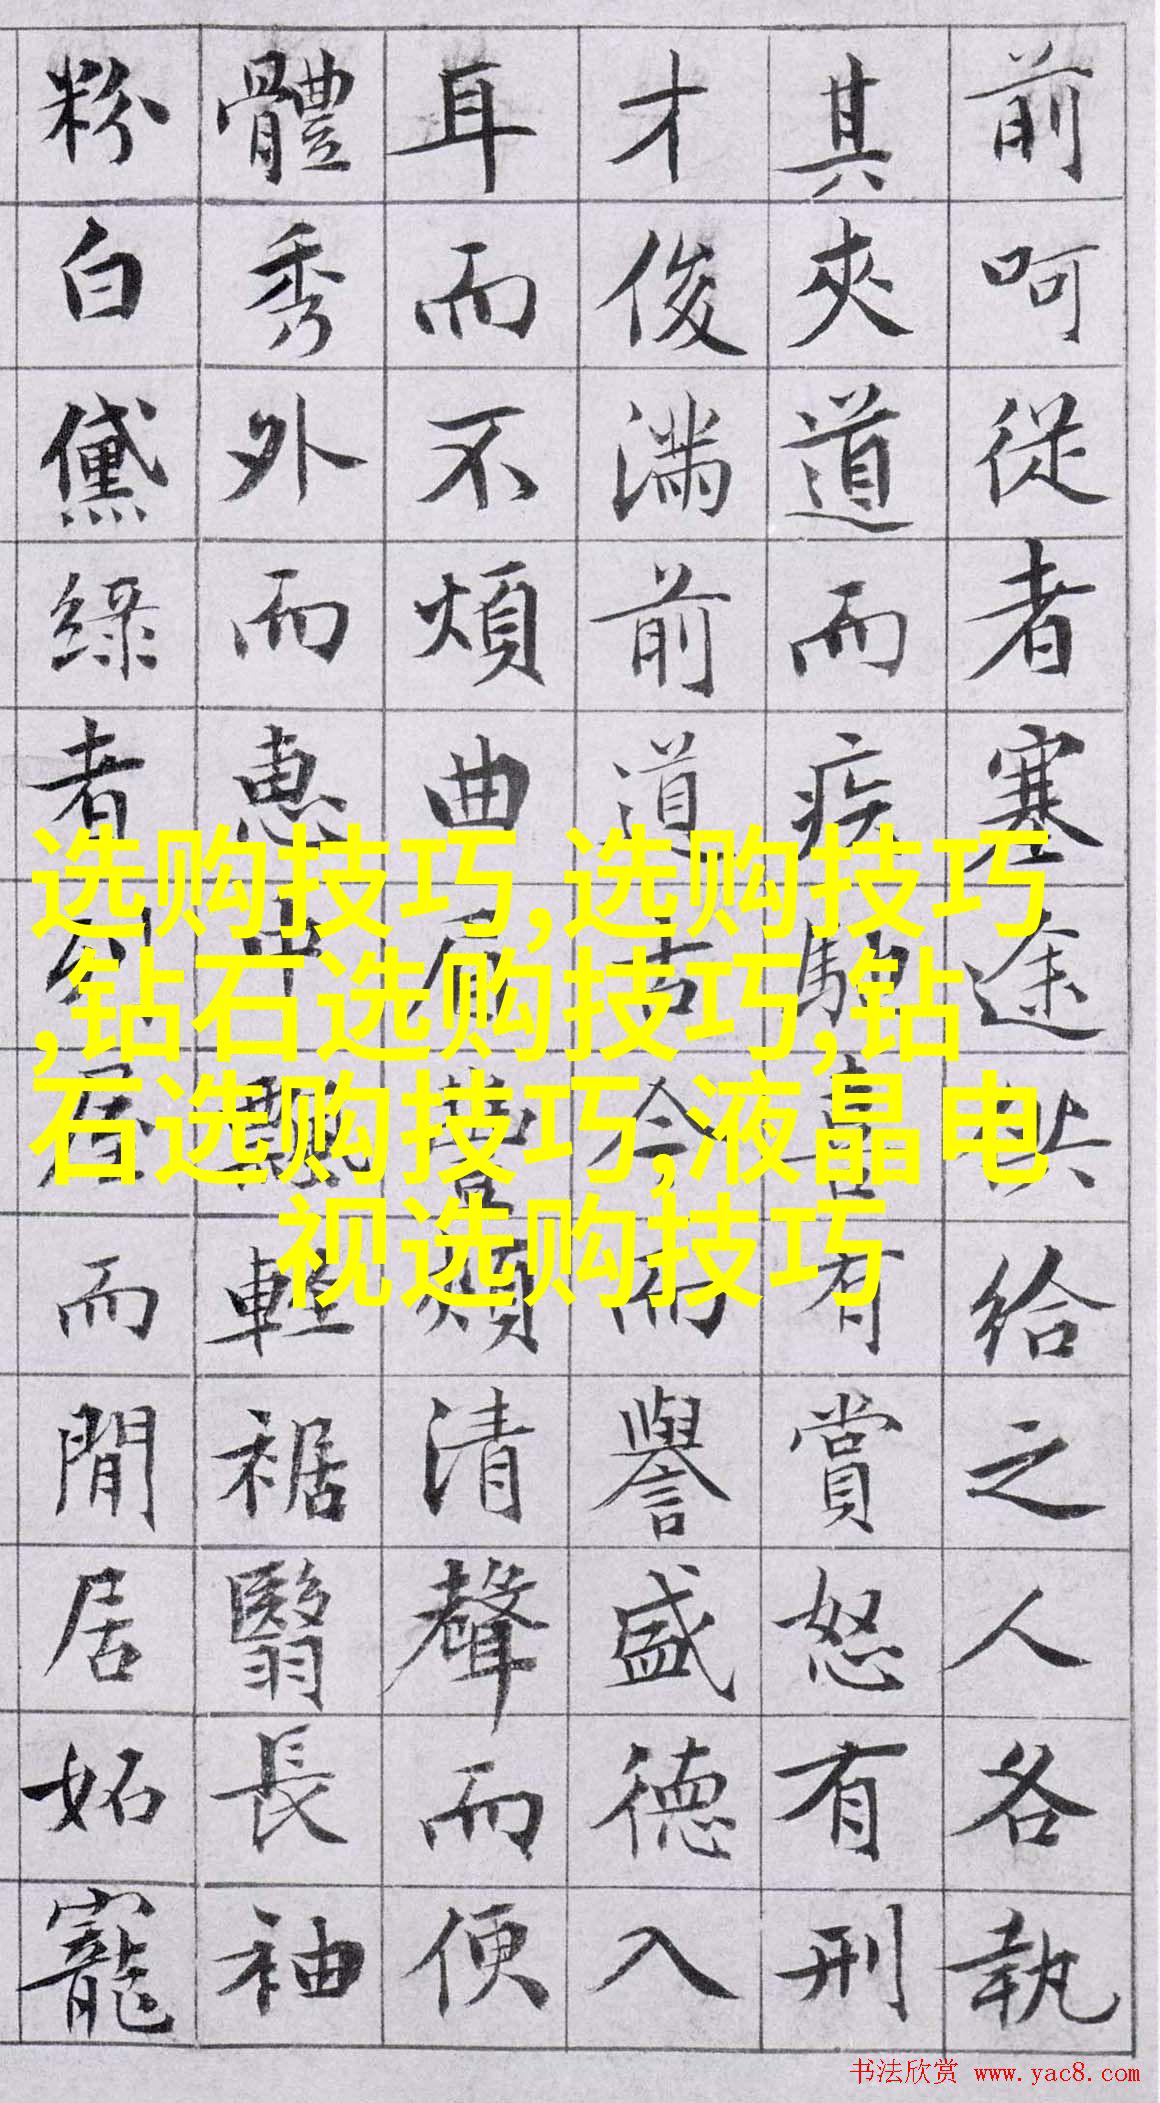 前呵從者塞途供給之人各執
其夾道而疾馳喜有賞怒有刑
才俊滿前道古今而譽盛德入
耳而不煩曲眉豐頰清聲而便
體秀外而惠中飄輕裾翳長袖
粉白黛綠者列屋而閒居妬寵
选购技巧,选购技巧
,钻石选购技巧,钻
石选购技巧,液晶电
视选购技巧
书法欣赏 www.yac8.com